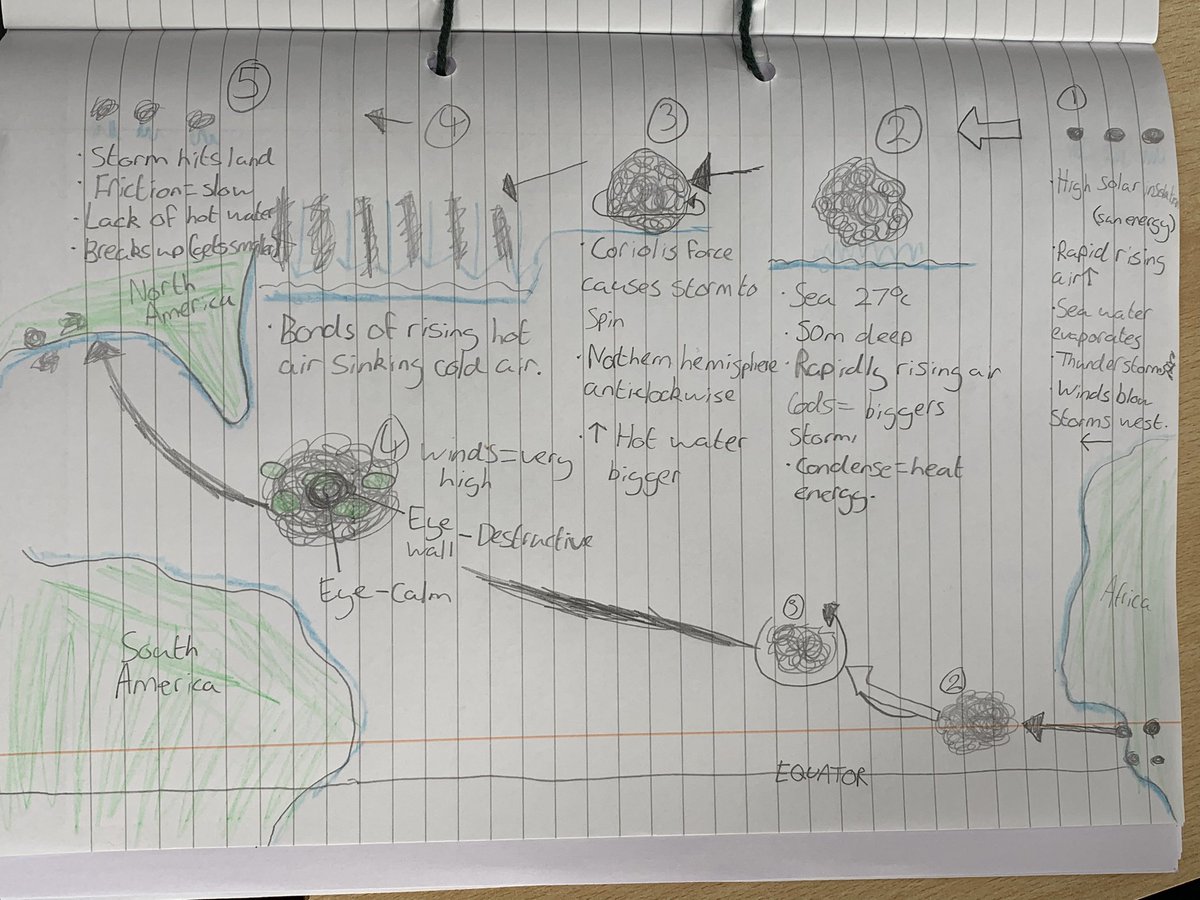 ①
· High solar insolation
(sun energy)
· Rapid rising
air↑
· Sea water
evaporates
· Thunderstorms
· Winds blow
storms west.
←
②
· Sea 27°c
· 50m deep
· Rapidly rising air
biggers
storm,
· Condense=heat
energy.
③
· Coriolis force
causes storm to
spin
· Nothern hemisphere
anticlockwise
· ↑ Hot water
bigger
④
· Bonds of rising hot
air sinking cold air.
⑤
· Storm hits land
· Friction=slow
· Lack of hot water
· Breaks up (gets smaller)
North
America
④
Winds=very
high
Eye
wall - Destructive
Eye-Calm
South
America
③
②
Africa
EQUATOR